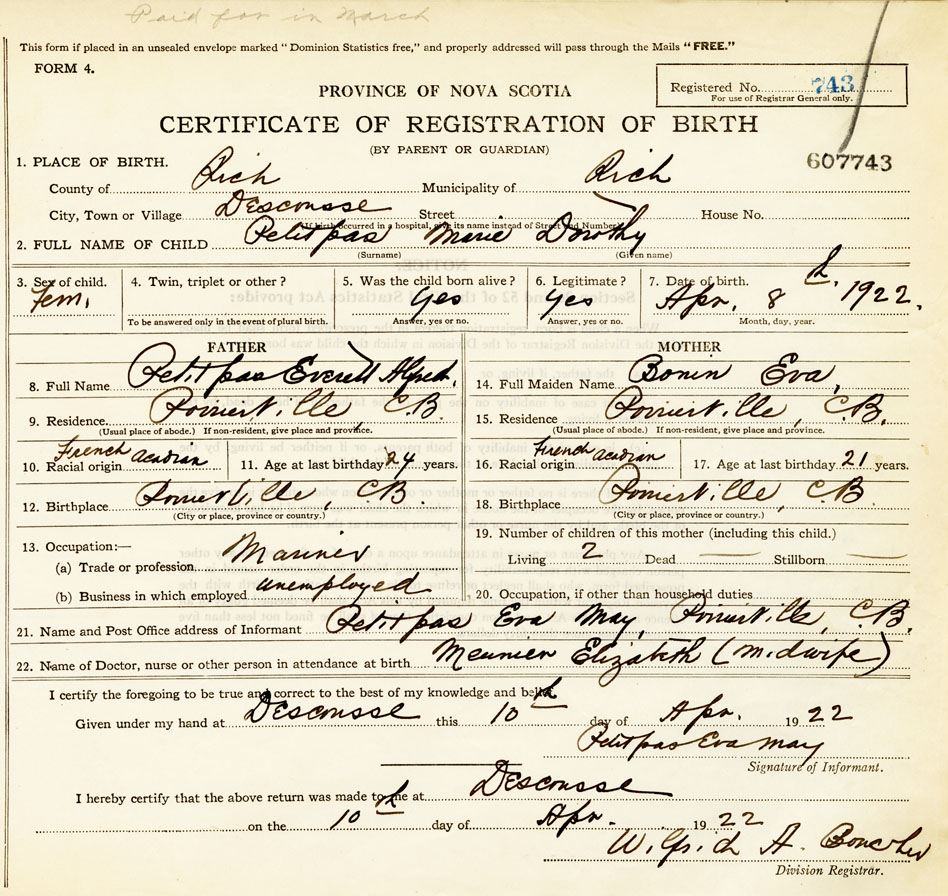 Paid for in March
This form if placed in an unsealed envelope marked "Dominion Statistics free," and properly addressed will pass through the Mails "FREE."
FORM 4.
Registered No. 743
For use of Registrar General only.
PROVINCE OF NOVA SCOTIA
CERTIFICATE OF REGISTRATION OF BIRTH
(BY PARENT OR GUARDIAN)
607743
1. PLACE OF BIRTH.
County of Rich Municipality of Rich
City, Town or Village Descousse Street House No.
(If birth occurred in a hospital, give its name instead of Street and Number)
2. FULL NAME OF CHILD Petitpas Marie Dorothy
(Surname) (Given name)
3. Sex of child. 4. Twin, triplet or other? 5. Was the child born alive? 6. Legitimate? 7. Date of birth.
Fem. Yes Yes Apr. 8th 1922.
To be answered only in the event of plural birth. Answer, yes or no. Answer, yes or no. Month, day, year.
FATHER MOTHER
8. Full Name Petitpas Everett Alfred. 14. Full Maiden Name Bonin Eva
9. Residence Poirierville C.B. 15. Residence Poirierville, C.B.
(Usual place of abode.) If non-resident, give place and province. (Usual place of abode.) If non-resident, give place and province.
10. Racial origin French Acadian 11. Age at last birthday 24 years. 16. Racial origin French Acadian 17. Age at last birthday 21 years.
12. Birthplace Poirierville, C.B. 18. Birthplace Poirierville, C.B.
(City or place, province or country.) (City or place, province or country.)
13. Occupation:— 19. Number of children of this mother (including this child.)
(a) Trade or profession Mariner Living 2 Dead — Stillborn —
(b) Business in which employed unemployed 20. Occupation, if other than household duties
21. Name and Post Office address of Informant Petitpas Eva May, Poirierville, C.B.
22. Name of Doctor, nurse or other person in attendance at birth Meunier Elizabeth (midwife)
I certify the foregoing to be true and correct to the best of my knowledge and belief.
Given under my hand at Descousse this 10th day of Apr. 1922
Petitpas Eva May
Signature of Informant.
I hereby certify that the above return was made to me at Descousse
on the 10th day of Apr. 1922
Wilfrid A. Boucher
Division Registrar.